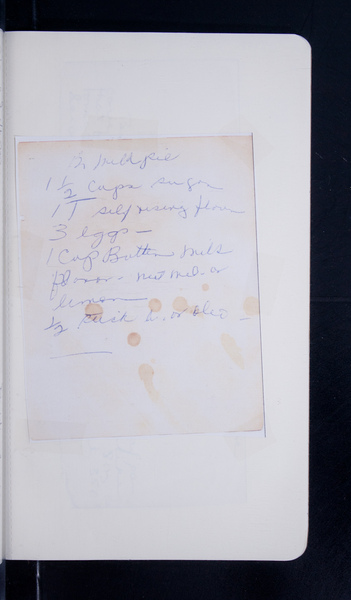 B. Milk pie
1 1/2 Cups sugar
1 T self rising flour
3 Eggs —
1 Cup Butter Milk
flavor - nut med. or
lemon —
1/2 stick b. or oleo —